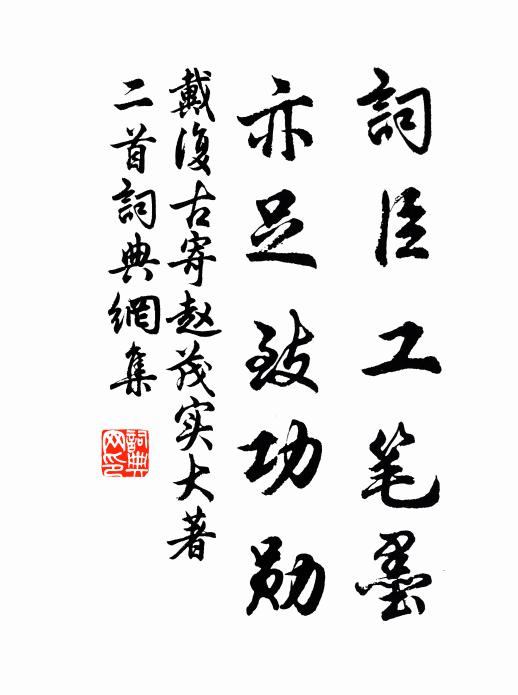 詞臣工笔墨
亦足致功勋
戴復古寄赵茂实大著
二首詞典網集
詞典
网印